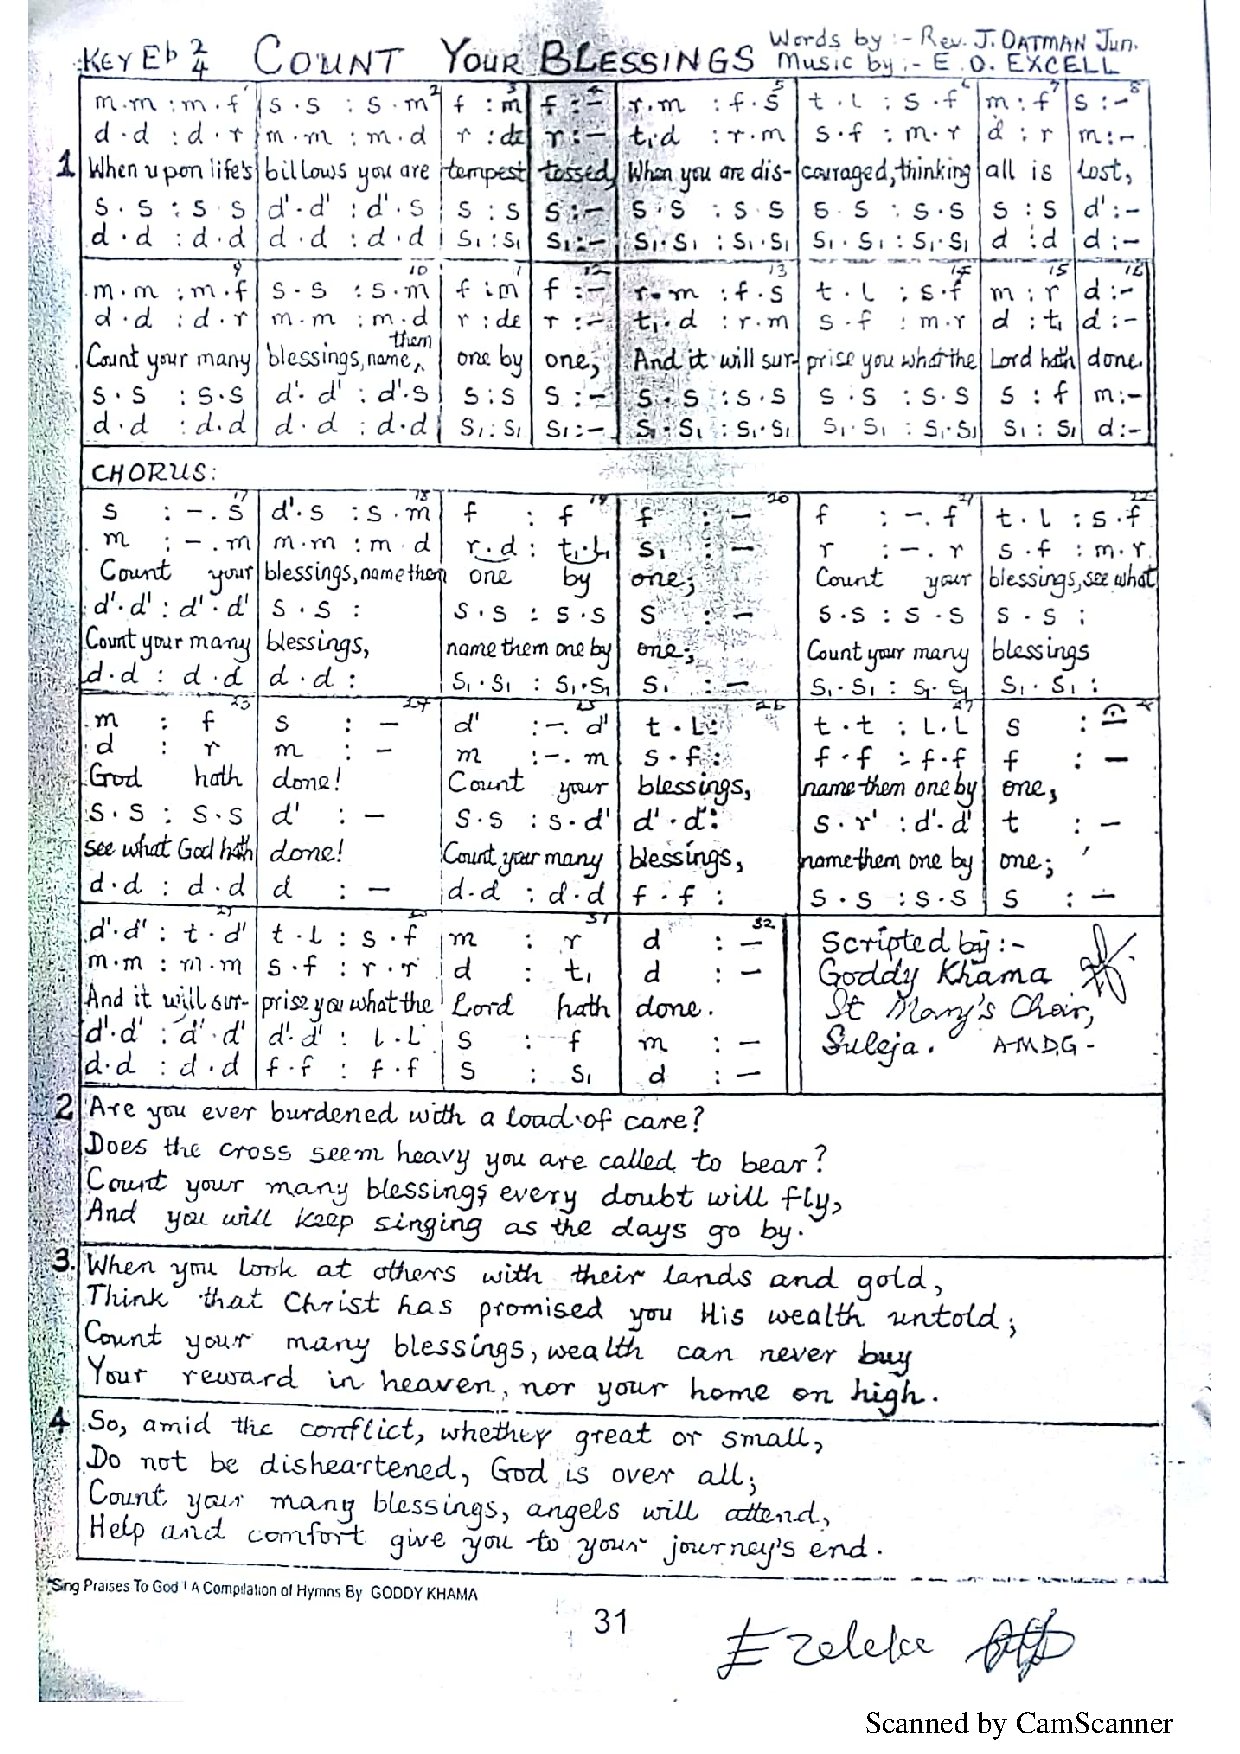 KEY Eb 2/4 COUNT YOUR BLESSINGS Words by :- Rev. J. OATMAN Jun.
Music by :- E. O. EXCELL
m.m : m.f | s.s : s.m | f : m | f : - | r.m : f.s | t.l : s.f | m : f | s : -
d.d : d.r | m.m : m.d | r : de | r : - | t₁d : r.m | s.f : m.r | d : r | m : -
1 When upon life's billows you are tempest tossed, When you are dis-couraged, thinking all is lost,
s.s : s s | d'.d' : d'.s | s : s | s : - | s.s : s s | s s : s.s | s : s | d' : -
d.d : d.d | d.d : d.d | s₁ : s₁ | s₁ : - | s₁.s₁ : s₁.s₁ | s₁.s₁ : s₁.s₁ | d : d | d : -
m.m : m.f | s.s : s.m | f : m | f : - | r.m : f.s | t.l : s.f | m : r | d : -
d.d : d.r | m.m : m.d | r : de | r : - | t₁.d : r.m | s.f : m.r | d : t₁ | d : -
Count your many blessings, name them one by one; And it will sur-prise you what the Lord hath done.
s.s : s.s | d'.d' : d'.s | s : s | s : - | s.s : s.s | s.s : s.s | s : f | m : -
d.d : d.d | d.d : d.d | s₁ : s₁ | s₁ : - | s₁.s₁ : s₁.s₁ | s₁.s₁ : s₁.s₁ | s₁ : s₁ | d : -
CHORUS:
s : -.s | d'.s : s.m | f : f | f : - | f : -.f | t.l : s.f
m : -.m | m.m : m d | r.d : t₁.l₁ | s₁ : - | r : -.r | s.f : m.r
Count your blessings, name them one by one; Count your blessings, see what
d'.d' : d'.d' | s.s : | s.s : s.s | s : - | s.s : s.s | s.s :
Count your many blessings, name them one by one; Count your many blessings
d.d : d.d | d.d : | s₁.s₁ : s₁.s₁ | s₁ : - | s₁.s₁ : s₁.s₁ | s₁.s₁ :
m : f | s : - | d' : -.d' | t.l : | t.t : l.l | s : -
d : r | m : - | m : -.m | s.f : | f.f : f.f | f : -
God hath done! Count your blessings, name them one by one,
s.s : s.s | d' : - | s.s : s.d' | d'.d' : | s.r' : d'.d' | t : -
see what God hath done! Count your many blessings, name them one by one;
d.d : d.d | d : - | d.d : d.d | f.f : | s.s : s.s | s : -
d'.d' : t.d' | t.l : s.f | m : r | d : - Scripted by :-
m.m : m.m | s.f : r.r | d : t₁ | d : - Goddy Khama
And it will sur-prise you what the Lord hath done. St Mary's Choir,
d'.d' : d'.d' | d'.d' : l.l | s : f | m : - Suleja. A.M.D.G -
d.d : d.d | f.f : f.f | s : s₁ | d : -
2 Are you ever burdened with a load of care?
Does the cross seem heavy you are called to bear?
Count your many blessings every doubt will fly,
And you will keep singing as the days go by.
3. When you look at others with their lands and gold,
Think that Christ has promised you His wealth untold;
Count your many blessings, wealth can never buy
Your reward in heaven, nor your home on high.
4. So, amid the conflict, whether great or small,
Do not be disheartened, God is over all;
Count your many blessings, angels will attend,
Help and comfort give you to your journey's end.
"Sing Praises To God ! A Compilation of Hymns By GODDY KHAMA
31
Ezeleke
Scanned by CamScanner